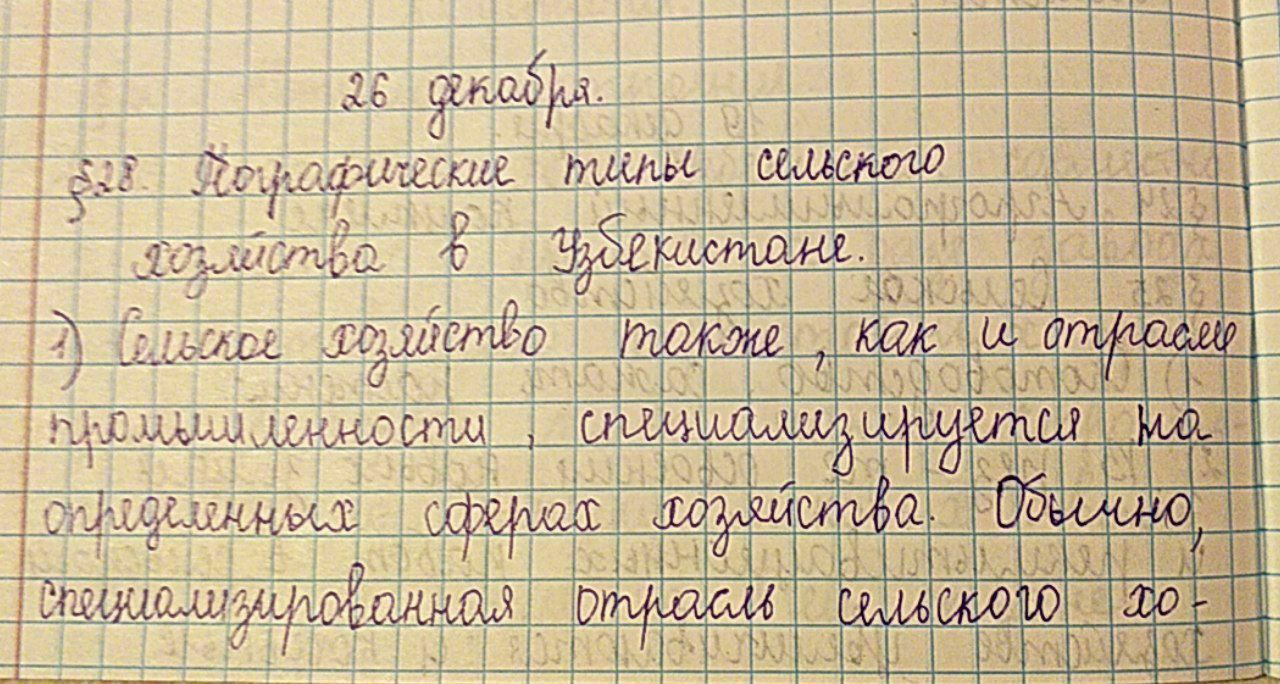 26 декабря.
§28. Географические типы сельского
хозяйства в Узбекистане.
1) Сельское хозяйство также, как и отрасли
промышленности, специализируется на
определенных сферах хозяйства. Обычно,
специализированная отрасль сельского хо-